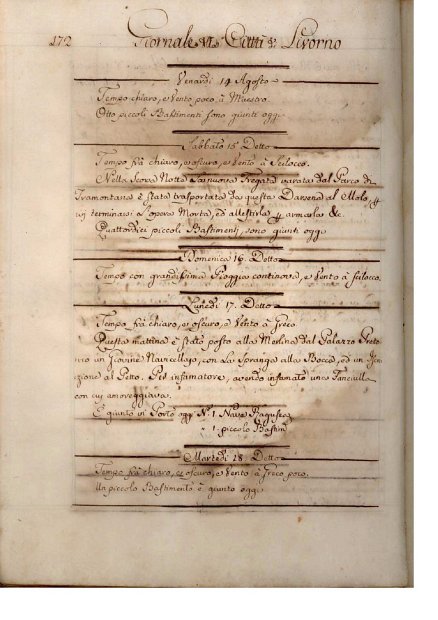 172 Giornale VI. Città di Livorno
Venardi 14 Agosto
Tempo chiaro, e Vento poco à Maestro.
Otto piccoli Bastimenti sono giunti oggi
Sabbato 15 Detto
Tempo frà chiaro, e oscuro, e Vento à Scilocco.
Nella scorsa Notte La nuova Fregata varata dal Parco di
Tramontana è stata trasportata da questa Darsena al Molo p
ivi terminare l'opera Morta, ed allestirla p armarla &c
Quattordici piccoli Bastimenti, sono giunti oggi
Domenica 16. Detto
Tempo con grandissima Pioggia continova, e Vento à scilocco.
Lunedì 17. Detto
Tempo frà chiaro, e oscuro, e Vento à Greco
Questa mattina è stato posto alla Berlina dal Palazzo Preto
rio un Giovine Navicellajo, con la Spranga alla Bocca, ed un Jscri
zione al Petto. Per infamatore, avendo infamato una Fanciulla
con cui amoreggiava.
È giunto in Porto oggi N.º 1. Nave Ragusea
" 1. piccolo Bastim
Martedì 18. Detto
Tempo frà chiaro, e oscuro, e Vento à Greco poco.
Un piccolo Bastimento è giunto oggi